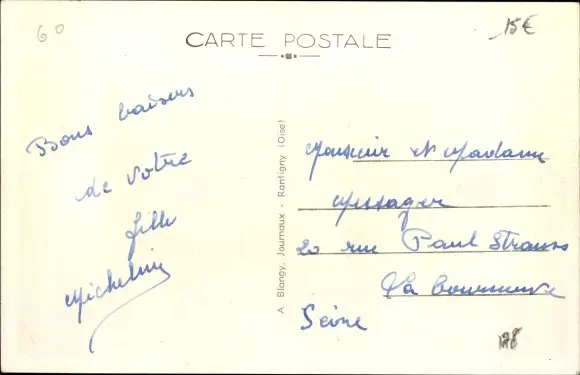 60
15€
CARTE POSTALE
Bons baisers
de votre
fille
Micheline
A. Blangy, Journaux - Rantigny (Oise)
Monsieur et Madame
Messager
20 rue Paul Strauss
La Courneuve
Seine